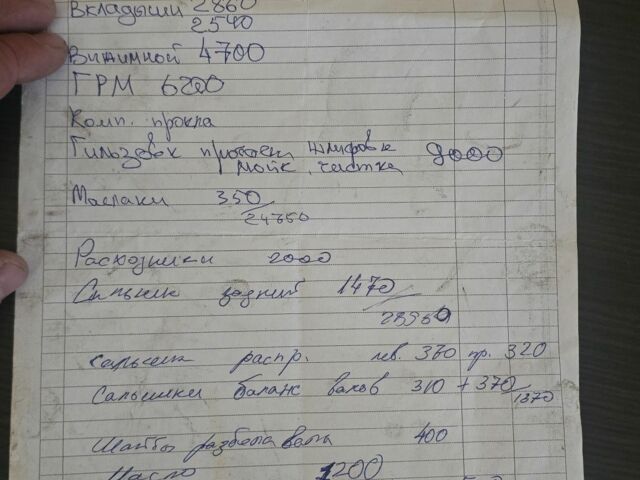 Вкладыши 2860
2540
Выжимной 4700
ГРМ 6200
Комп. прокла
Гильзовк проточк шлифовк 9000
мойк, чистка
Маслаки 350
24350
Расходники 2000
Сальник задний 1470
28960
сальник распр. лев. 330 пр. 320
Сальники баланс валов 310 + 370
1370
Шайбы разбега вала 400
Масло 1200